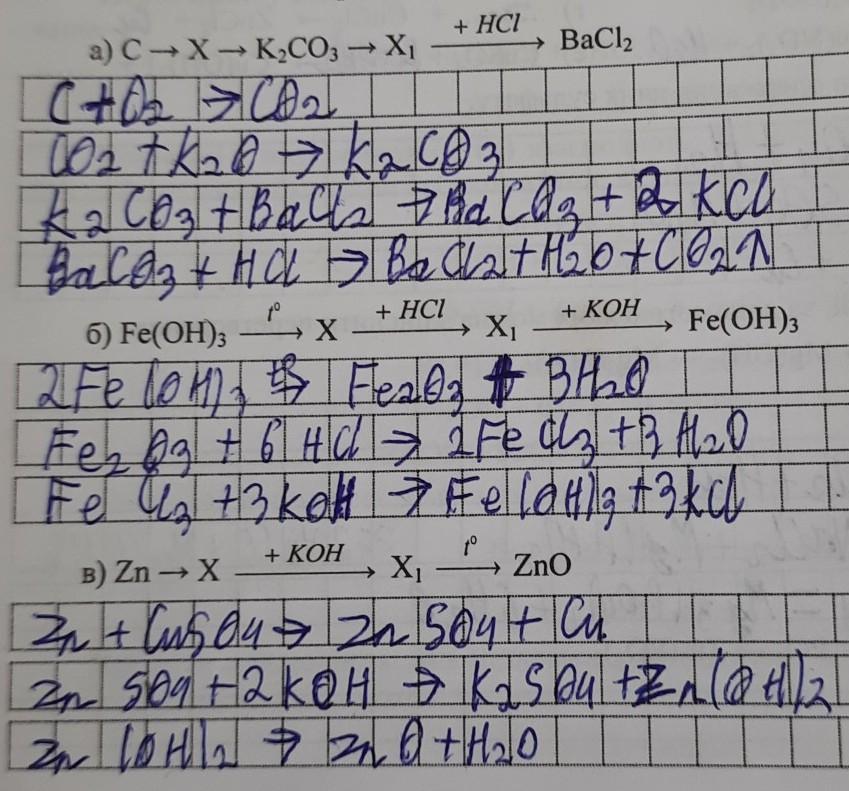 а) C → X → K₂CO₃ → X₁ + HCl → BaCl₂
C + O₂ → CO₂
CO₂ + K₂O → K₂CO₃
K₂CO₃ + BaCl₂ → BaCO₃ + 2 KCl
BaCO₃ + HCl → BaCl₂ + H₂O + CO₂↑
б) Fe(OH)₃ t° → X + HCl → X₁ + KOH → Fe(OH)₃
2Fe(OH)₃ t° → Fe₂O₃ + 3H₂O
Fe₂O₃ + 6 HCl → 2FeCl₃ + 3H₂O
FeCl₃ + 3KOH → Fe(OH)₃ + 3KCl
в) Zn → X + KOH → X₁ t° → ZnO
Zn + CuSO₄ → ZnSO₄ + Cu
ZnSO₄ + 2KOH → K₂SO₄ + Zn(OH)₂
Zn(OH)₂ → ZnO + H₂O